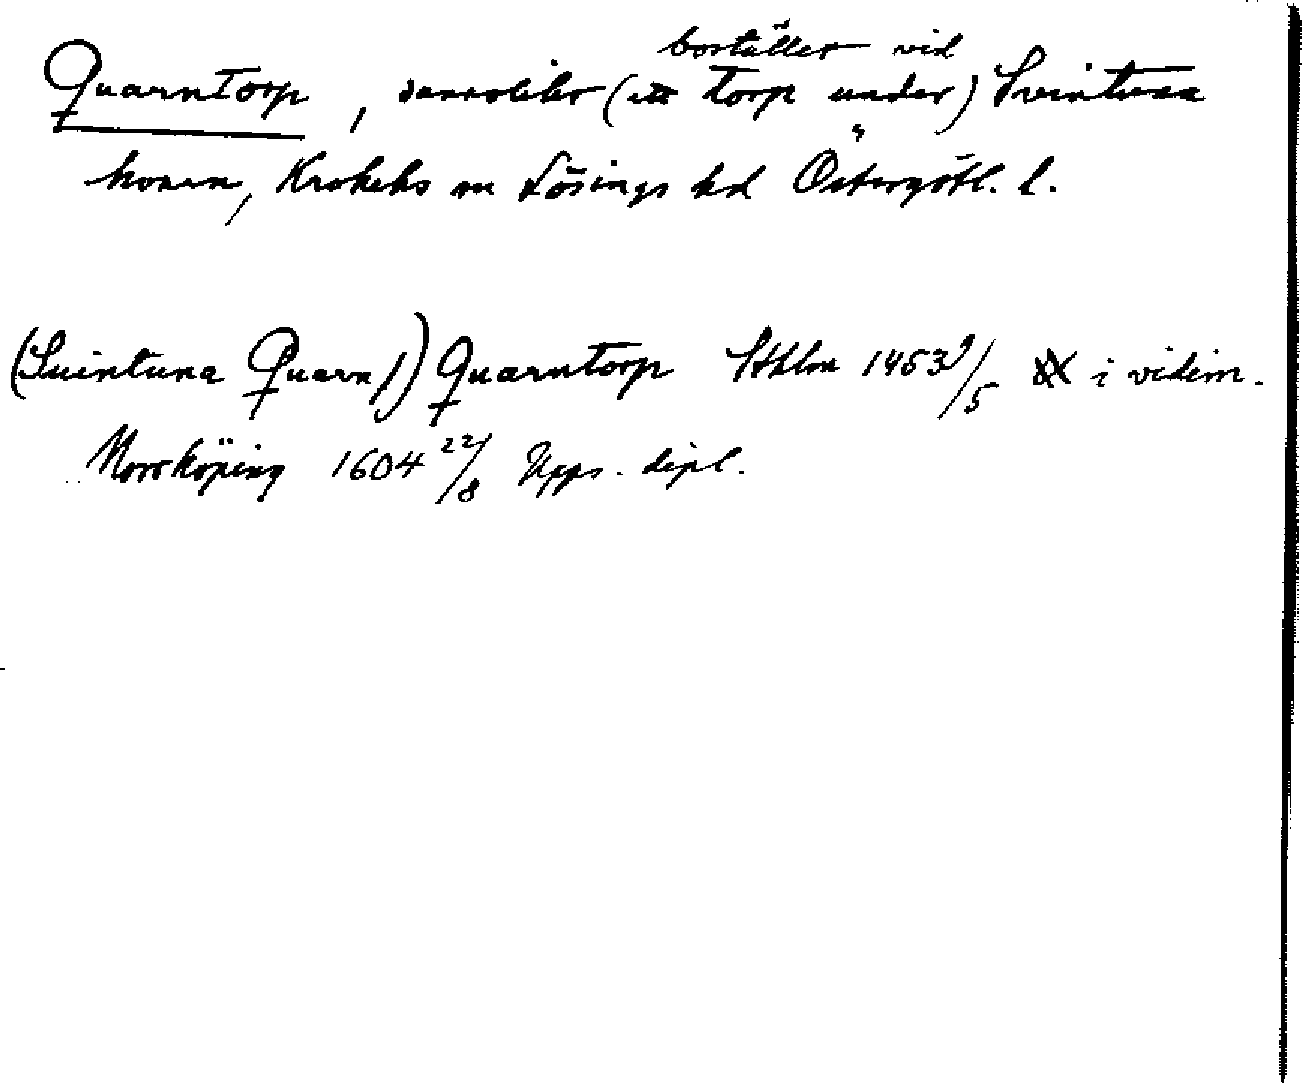 boställer vid
Quarntorp, sannolikt (ett torp under) Svintuna
kvarn, Krokeks sn Lösings hd Östergötl. l.
(Suintuna Quarn /) Quarntorp Sthlm 1453 9/5 i vidim.
Norrköping 1604 22/8 Upps. dipl.